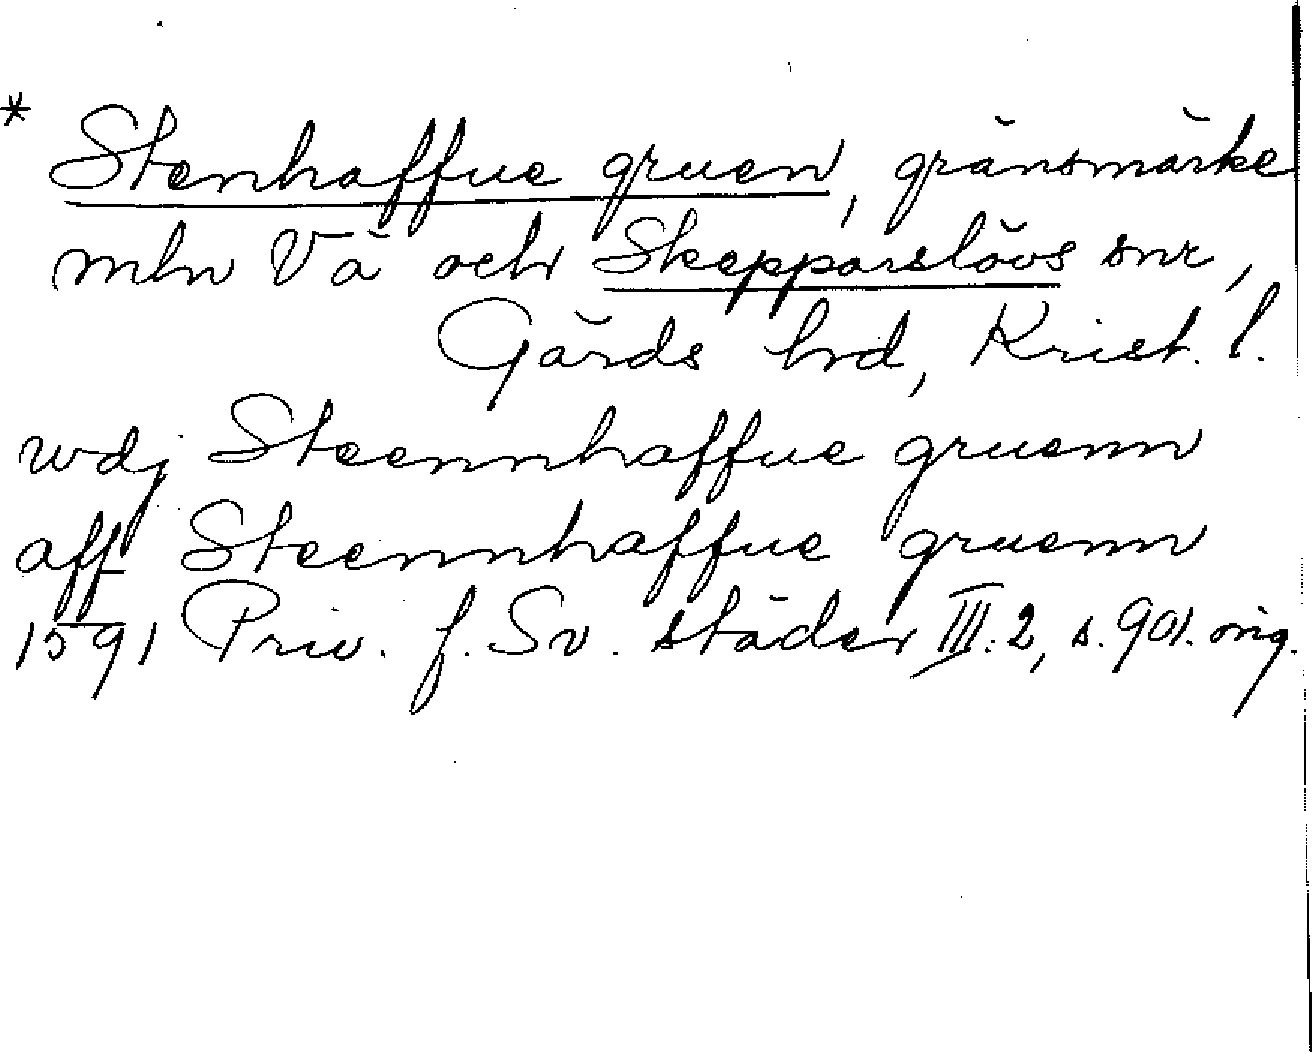 * Stenhaffue gruen, gränsmärke
mln Vä och Skepparslövs snr,
Gärds hrd, Krist. l.
wdj Steennhaffue gruenn
aff Steennhaffue gruenn
1591 Priv. f. Sv. städer III:2, s. 901. orig.